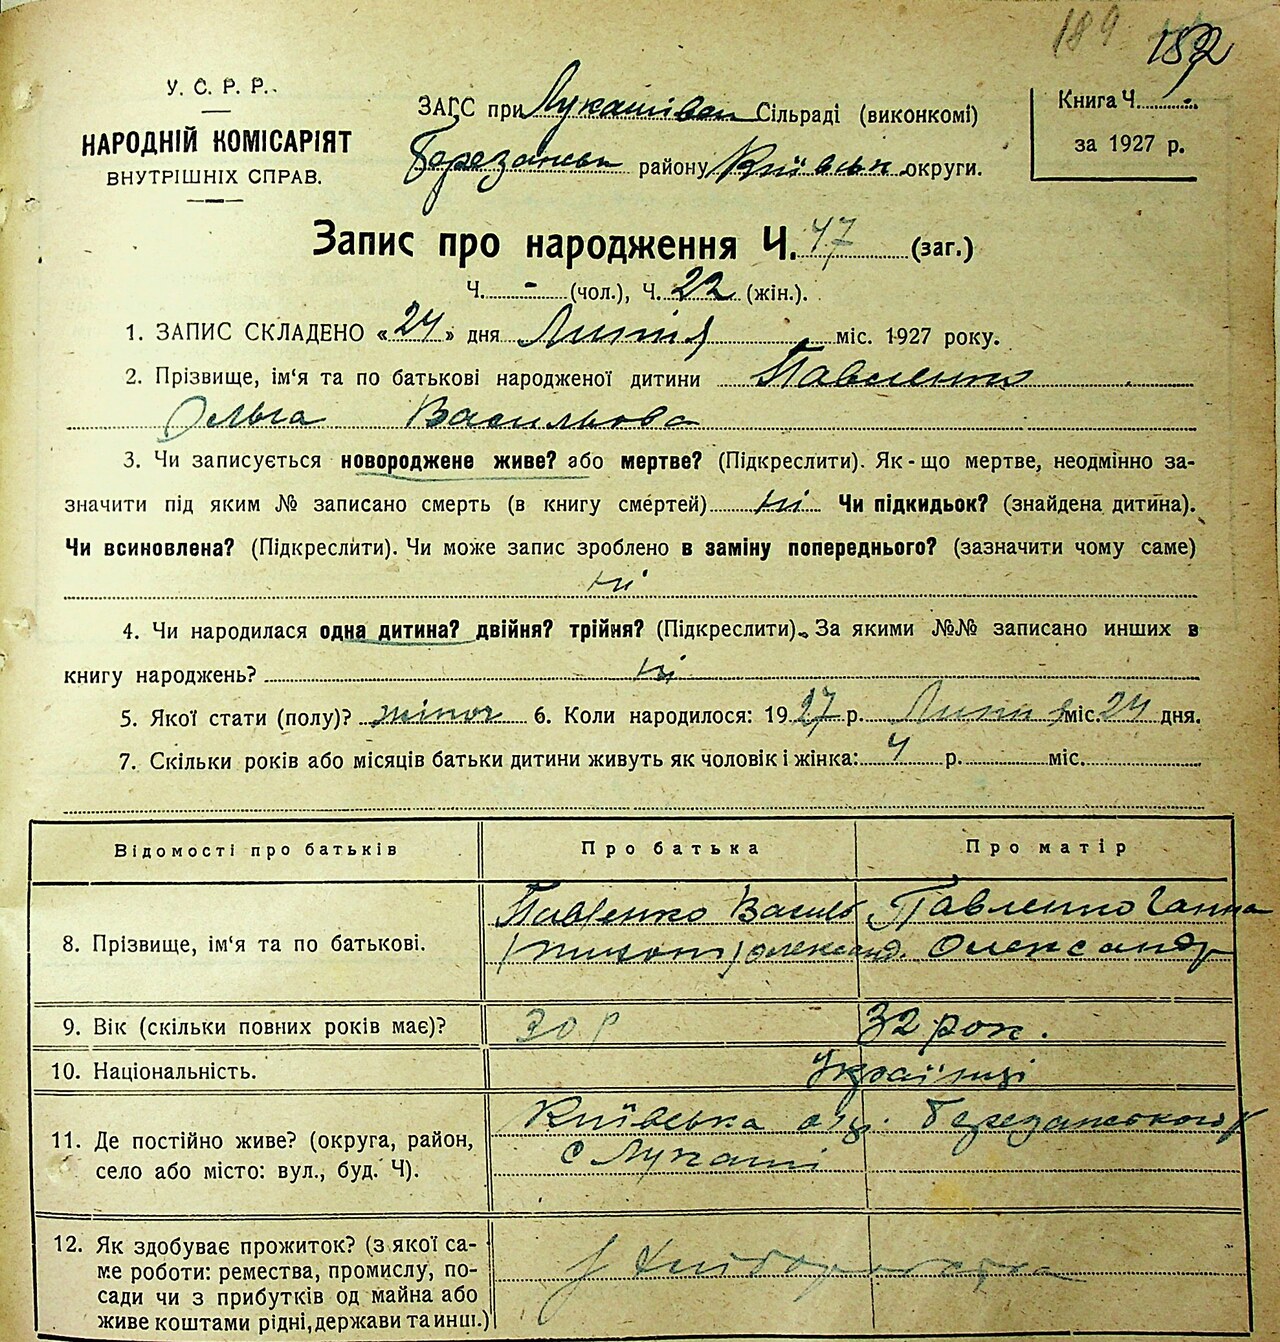 189
У. С. Р. Р.
НАРОДНІЙ КОМІСАРІЯТ
ВНУТРІШНІХ СПРАВ.
ЗАГС при Лукашівск Сільраді (виконкомі)
Березанськ району Київськ округи.
Книга Ч. -
за 1927 р.
Запис про народження Ч. 47 (заг.)
Ч. - (чол.), Ч. 22 (жін.).
1. ЗАПИС СКЛАДЕНО «24» дня Липня міс. 1927 року.
2. Прізвище, ім‘я та по батькові народженої дитини Павленко
Ольга Васильова
3. Чи записується новороджене живе? або мертве? (Підкреслити). Як-що мертве, неодмінно за-
значити під яким № записано смерть (в книгу смертей) ні Чи підкидьок? (знайдена дитина).
Чи всиновлена? (Підкреслити). Чи може запис зроблено в заміну попереднього? (зазначити чому саме)
ні
4. Чи народилася одна дитина? двійня? трійня? (Підкреслити). За якими №№ записано инших в
книгу народжень? ні
5. Якої стати (полу)? жіноч 6. Коли народилося: 1927 р. Липня міс. 24 дня.
7. Скільки років або місяців батьки дитини живуть як чоловік і жінка: 4 р. міс.
Відомості про батьків Про батька Про матір
8. Прізвище, ім‘я та по батькові. Павленко Василь Павленко Ганна
Олександ. Олександр
9. Вік (скільки повних років має)? 30 р 32 рок.
10. Національність. Українці
11. Де постійно живе? (округа, район, Київська окр. Березанського р
село або місто: вул., буд. Ч). с Лукаші
12. Як здобуває прожиток? (з якої са-
ме роботи: ремества, промислу, по- Хліборобства
сади чи з прибутків од майна або
живе коштами рідні, держави та инш.)